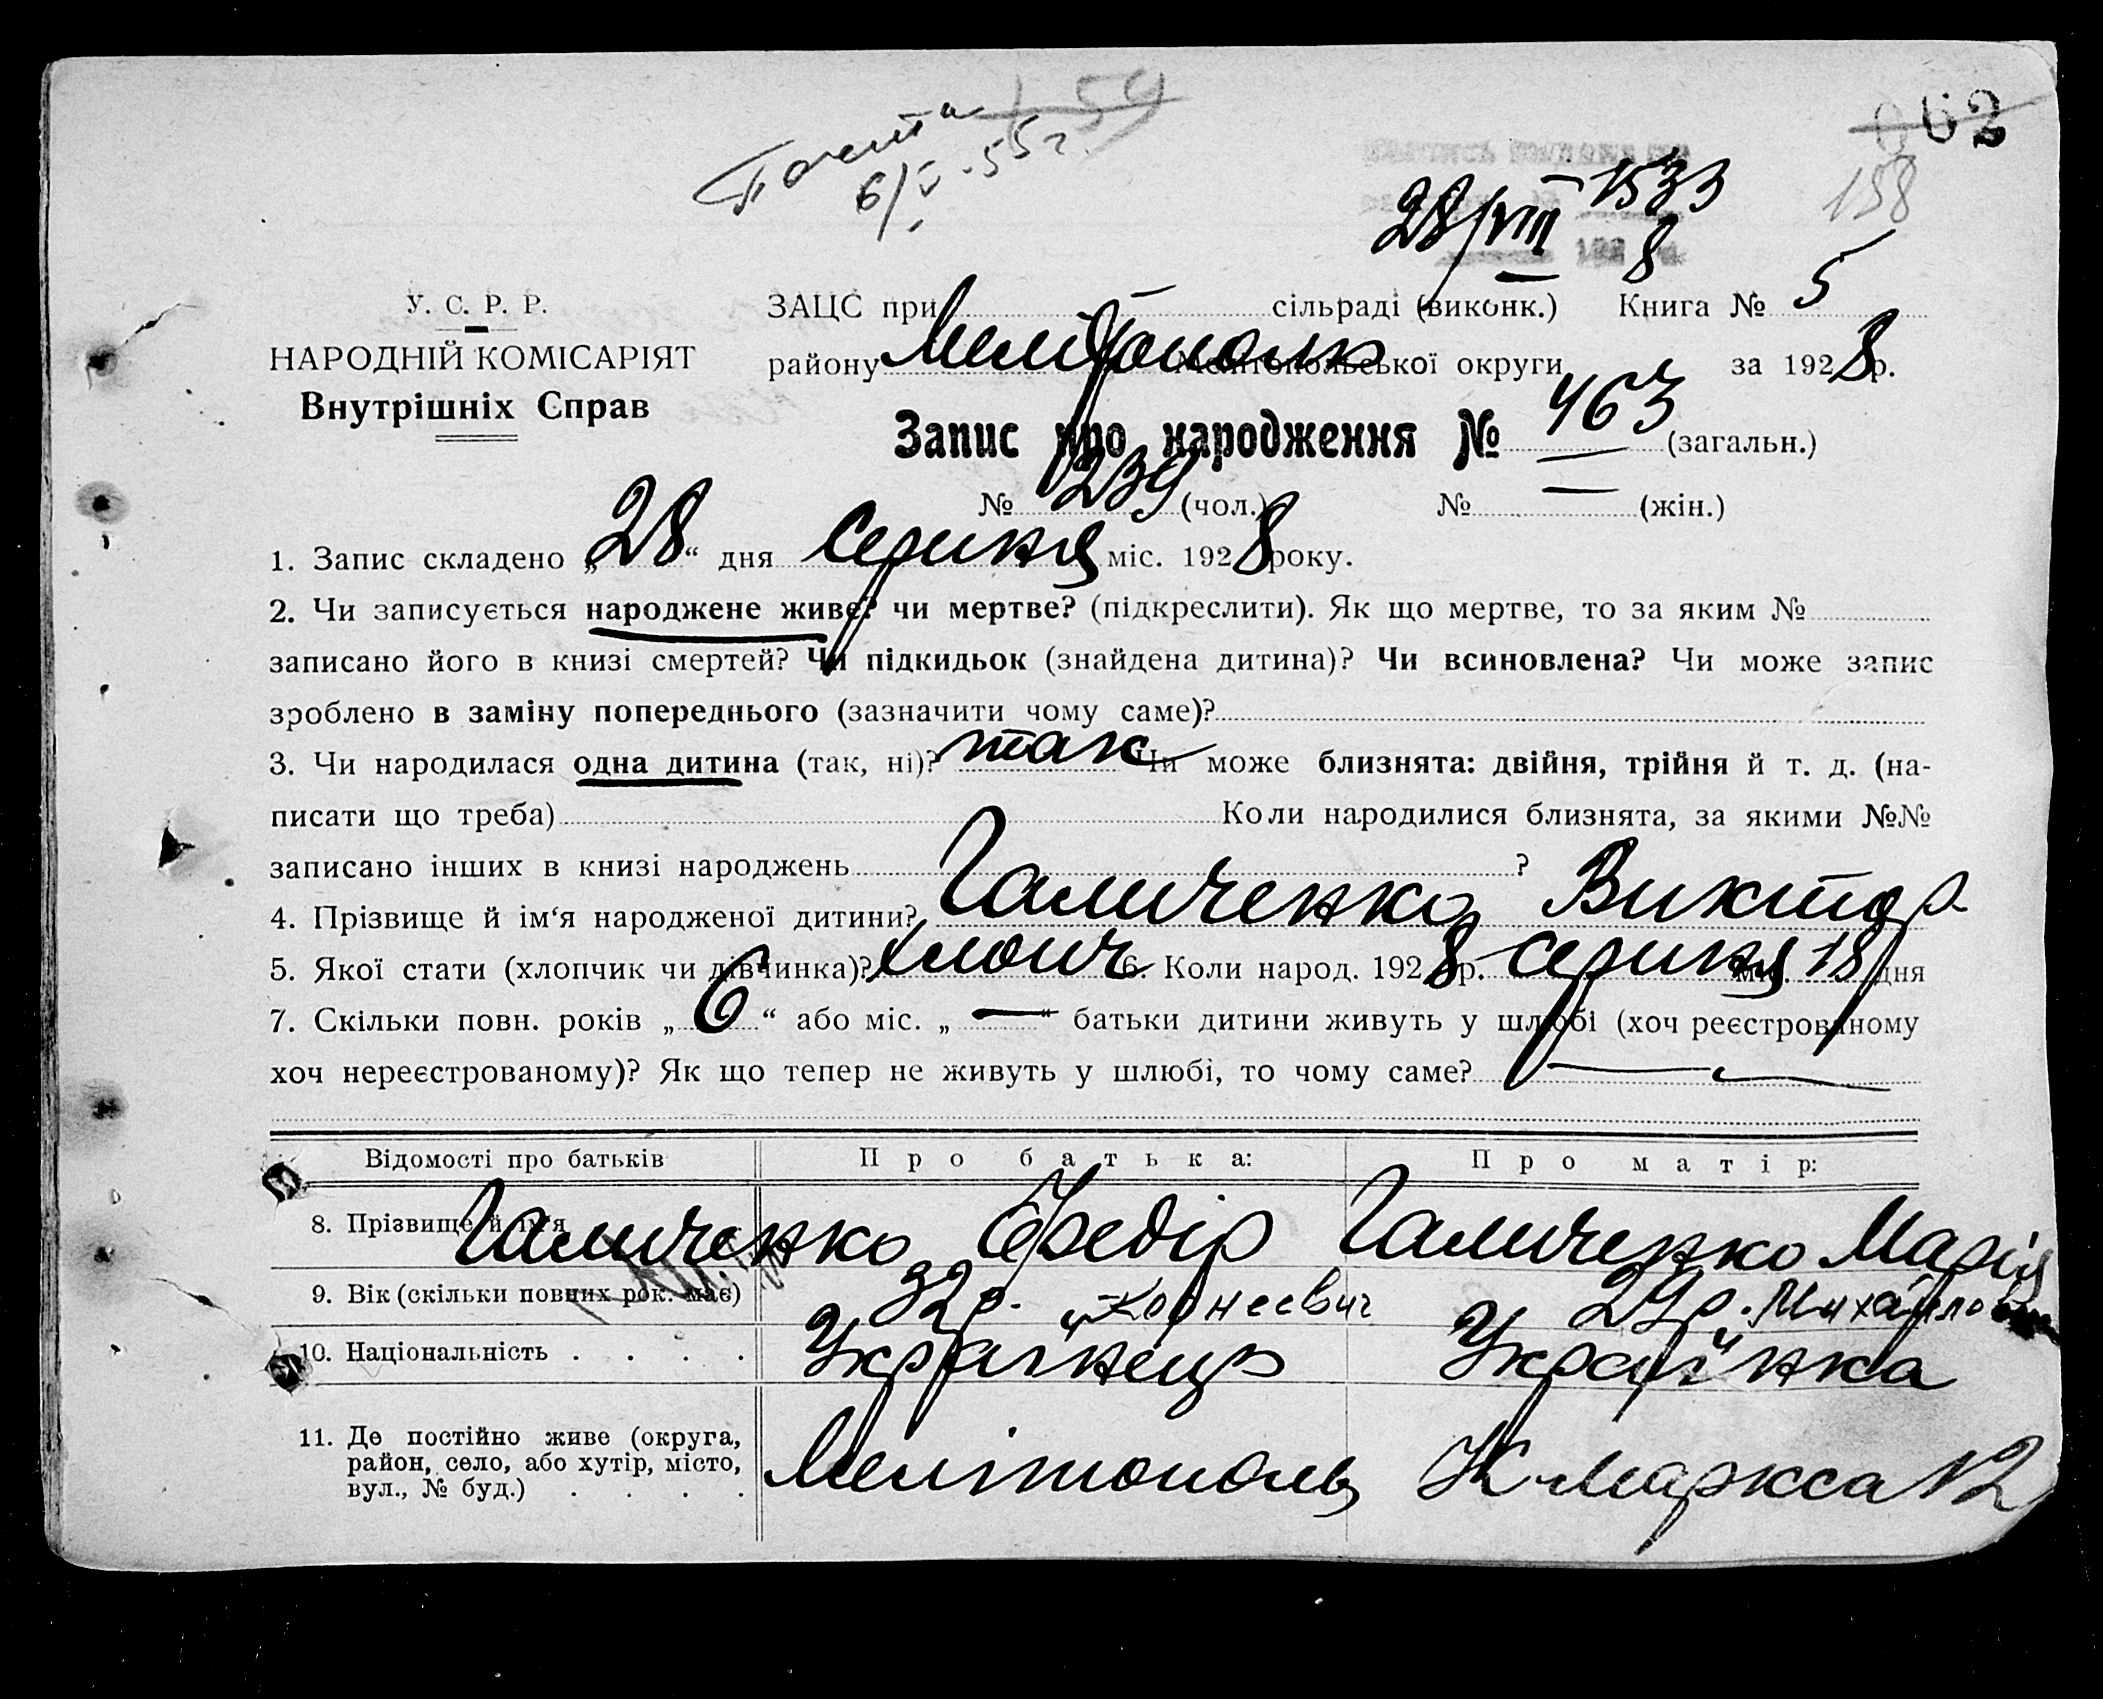 Почта 159
6/V-55 г.
062
28/VIII – 1533
8
158
У. С. Р. Р.
НАРОДНІЙ КОМІСАРІЯТ
Внутрішніх Справ
ЗАЦС при сільраді (виконк.) Книга № 5
району Мелітополь Мелітопольської округи за 1928 р.
Запис про народження № 463 (загальн.)
№ 239 (чол.) № — (жін.)
1. Запис складено „28“ дня Серпня міс. 1928 року.
2. Чи записується народжене живе? чи мертве? (підкреслити). Як що мертве, то за яким №
записано його в книзі смертей? Чи підкидьок (знайдена дитина)? Чи всиновлена? Чи може запис
зроблено в заміну попереднього (зазначити чому саме)?
3. Чи народилася одна дитина (так, ні)? так Чи може близнята: двійня, трійня й т. д. (на-
писати що треба) Коли народилися близнята, за якими №№
записано інших в книзі народжень ?
4. Прізвище й ім‘я народженої дитини? Галиченко Виктор
5. Якої стати (хлопчик чи дівчинка)? хлопч 6. Коли народ. 1928 р. серпня міс. 18 дня
7. Скільки повн. років „6“ або міс. „—“ батьки дитини живуть у шлюбі (хоч реєстрованому
хоч нереєстрованому)? Як що тепер не живуть у шлюбі, то чому саме? —
Відомості про батьків Про батька: Про матір:
8. Прізвище й ім‘я Галиченко Федір Галиченко Марія
9. Вік (скільки повних рок. має) 32 р. Корнеевич 29 р. Михайловна
10. Національність . . . . Українець Українка
11. Де постійно живе (округа,
район, село, або хутір, місто,
вул., № буд.) . . . . Мелітополь К Маркса 12